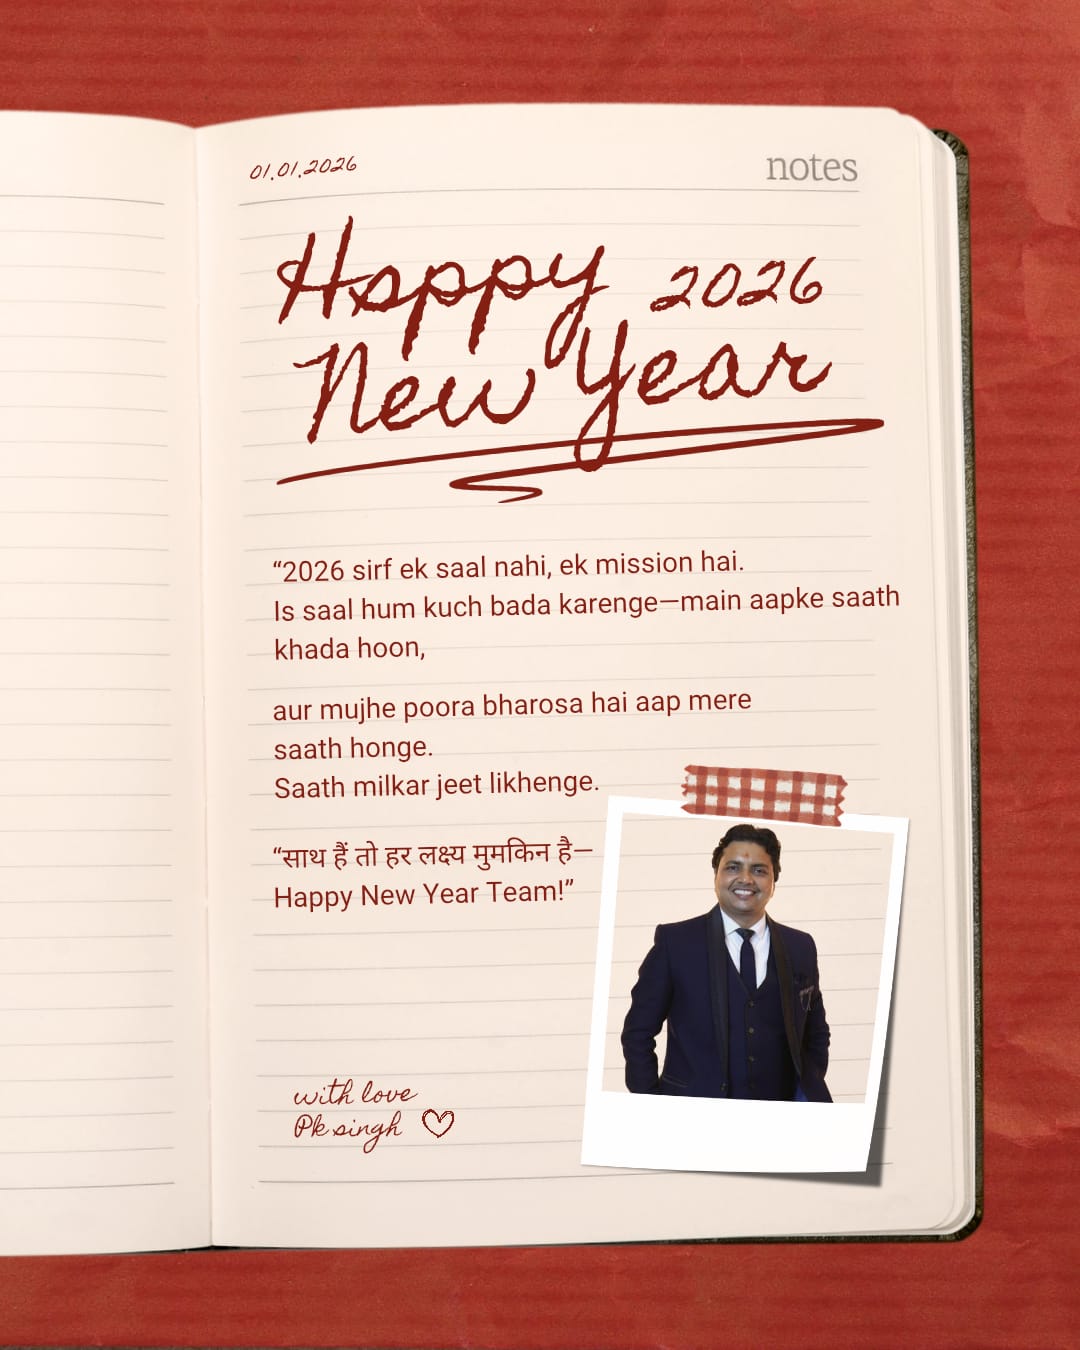 01.01.2026
notes
Happy 2026
New Year
“2026 sirf ek saal nahi, ek mission hai.
Is saal hum kuch bada karenge—main aapke saath
khada hoon,
aur mujhe poora bharosa hai aap mere
saath honge.
Saath milkar jeet likhenge.
“साथ हैं तो हर लक्ष्य मुमकिन है—
Happy New Year Team!”
with love
Pk singh